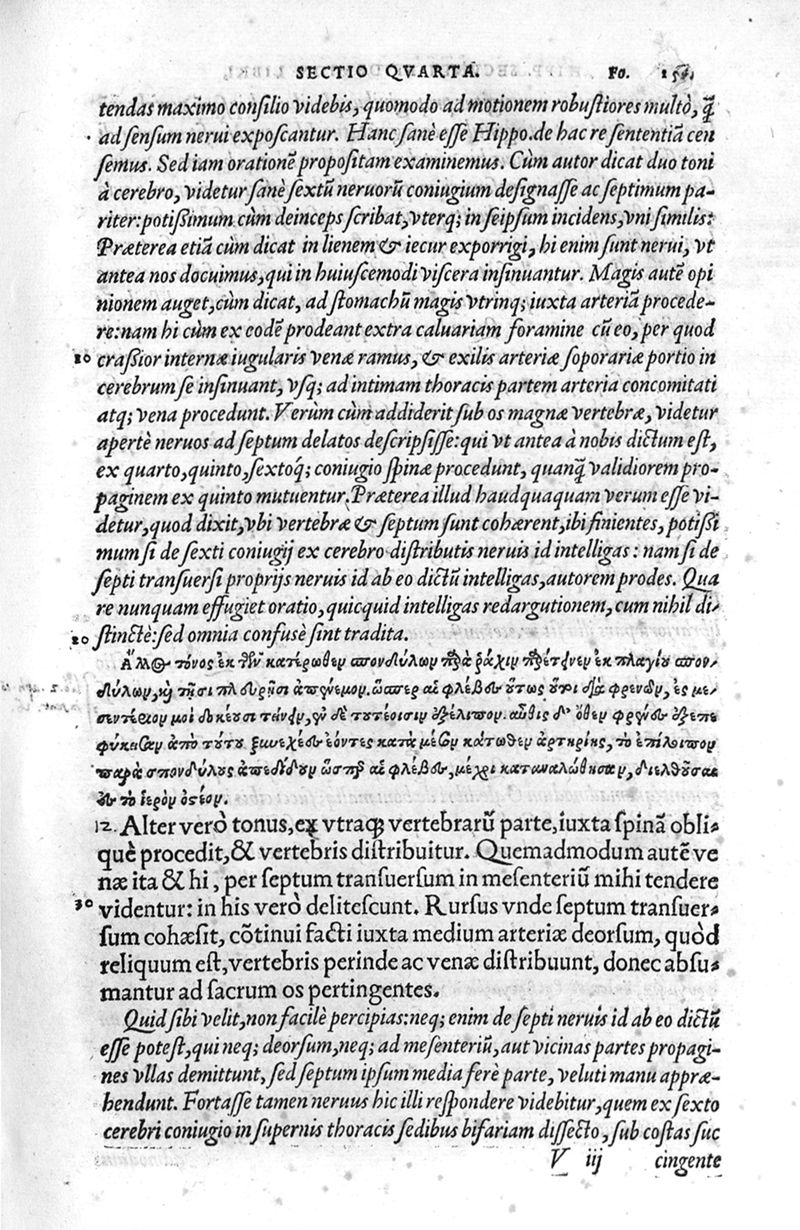 SECTIO QVARTA. Fo.
tendas maximo consilio videbis, quomodo ad motionem robustiores multò, q̃
ad sensum nerui exposcantur. Hanc sanè esse Hippo. de hac re sententiã cen
semus. Sed iam orationẽ propositam examinemus. Cùm autor dicat duo toni
à cerebro, videtur sanè sextũ neruorũ coniugium designasse ac septimum pa-
riter: potißimum cùm deinceps scribat, vterq; in seipsum incidens, vni similis:
Præterea etiã cùm dicat in lienem & iecur exporrigi, hi enim sunt nerui, vt
antea nos docuimus, qui in huiuscemodi viscera insinuantur. Magis autẽ opi
nionem auget, cùm dicat, ad stomachũ magis vtrinq; iuxta arteriã procede-
re: nam hi cùm ex eodẽ prodeant extra caluariam foramine cũ eo, per quod
10 craßior internæ iugularis venæ ramus, & exilis arteriæ soporariæ portio in
cerebrum se insinuant, vsq; ad intimam thoracis partem arteria concomitati
atq; vena procedunt. Verùm cùm addiderit sub os magnæ vertebræ, videtur
apertè neruos ad septum delatos descripsisse: qui vt antea à nobis dictum est,
ex quarto, quinto, sextoq́; coniugio spinæ procedunt, quanq̃ validiorem pro-
paginem ex quinto mutuentur. Præterea illud haudquaquam verum esse vi-
detur, quod dixit, vbi vertebræ & septum sunt cohærent, ibi finientes, potißi
mum si de sexti coniugij ex cerebro distributis neruis id intelligas: nam si de
septi transuersi proprijs neruis id ab eo dictũ intelligas, autorem prodes. Qua
re nunquam effugiet oratio, quicquid intelligas redargutionem, cum nihil di-
20 stinctè: sed omnia confusè sint tradita.
Ἄλλος τόνος ἐκ τῶν κατέρωθεν σπονδύλων παρὰ ῥάχιν
ἐκ πλαγίου σπον-
δύλων, ὥσπερ αἱ φλέβες οὗτος
δοκέουσι
ἀπὸ τούτου ξυνεχέες ἐόντες κατὰ μέσον κάτωθεν ἀρτηρίης, τὸ ἐπίλοιπον
παρὰ σπονδύλους αἱ φλέβες, μέχρι καταναλώθησαν, διελθοῦσαι
ἐς τὸ ἱερὸν ὀστέον.
12. Alter verò tonus, ex vtraq; vertebrarũ parte, iuxta spinã obli-
què procedit, & vertebris distribuitur. Quemadmodum autẽ ve
næ ita & hi, per septum transuersum in mesenteriũ mihi tendere
30 videntur: in his verò delitescunt. Rursus vnde septum transuer-
sum cohæsit, cõtinui facti iuxta medium arteriæ deorsum, quòd
reliquum est, vertebris perinde ac venæ distribuunt, donec absu-
mantur ad sacrum os pertingentes.
Quid sibi velit, non facilè percipias: neq; enim de septi neruis id ab eo dictũ
esse potest, qui neq; deorsum, neq; ad mesenteriũ, aut vicinas partes propagi-
nes vllas demittunt, sed septum ipsum media ferè parte, veluti manu appræ-
hendunt. Fortasse tamen neruus hic illi respondere videbitur, quem ex sexto
cerebri coniugio in supernis thoracis sedibus bifariam dissecto, sub costas suc
V iij cingente